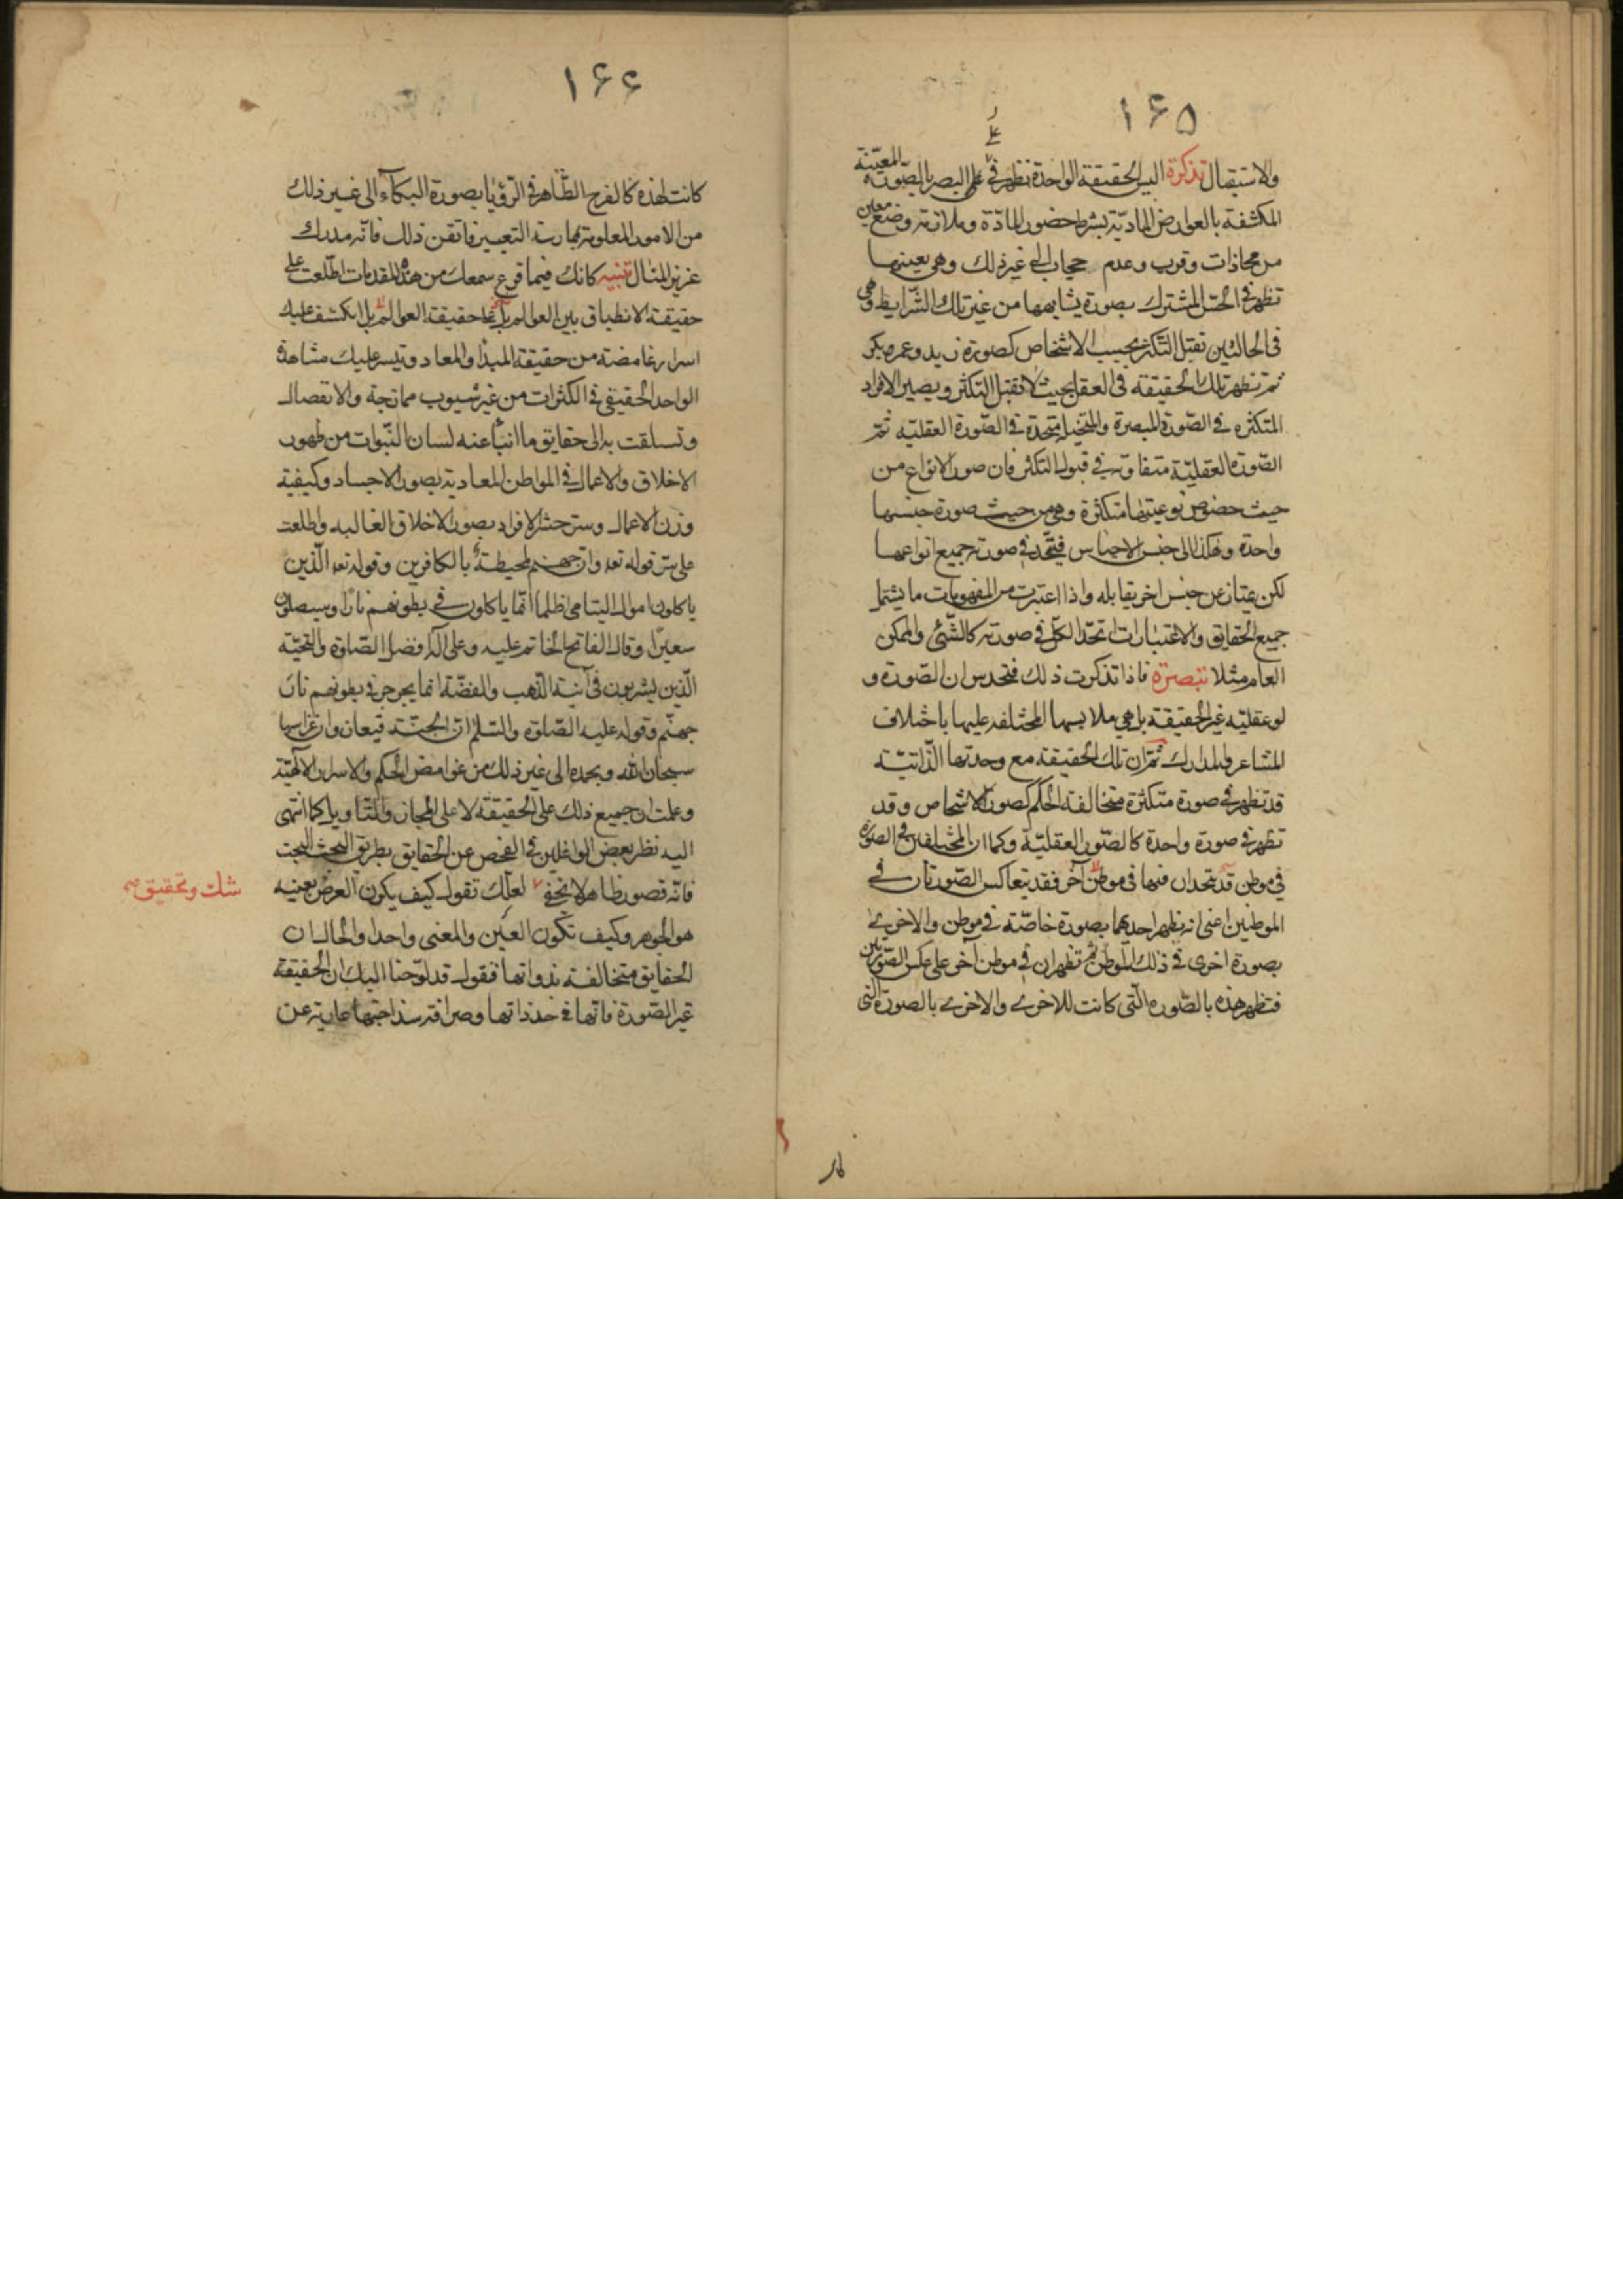 ١۶۵
والاستقبال تذكرة اليس الحقيقة الواحدة تظهر في البصر بالصّورة المعيّنة
المكتنفة بالعوارض الماديّة بشرط حضور المادّة وملازمة وضع معين
من محاذات وقرب وعدم حجاب الى غير ذلك وهي بعينها
تظهر في الحسّ المشترك بصورة يشابهها من غير تلك الشّرايط وهي
في الحالتين تقبل التكثر بحسب الاشخاص كصورة زيد وعمرو وبكر
ثم تظهر تلك الحقيقة في العقل بحيث لا تقبل التكثر ويصير الافراد
المتكثره في الصّورة المبصرة والمتخيلة متحدة في الصّورة العقليّه ثمّ
الصّوره العقليّة متفاوته في قبول التكثر فان صور الانواع من
حيث خصوص نوعيتها متكثرة وهي من حيث صورة جنسها
واحدة وهكذا الى جنس الاجناس فيتّحد في صورته جميع انواعها
لكن يمتاز عن جنس اخر يقابله واذا اعتبرت من المفهومات ما يشتمل
جميع الحقايق والاعتبارات اتحد الكلّ في صورته كالشّئ والممكن
العام مثلا تبصرة فاذا تذكرت ذلك فتحدس ان الصّورة و
لو عقليّه غير الحقيقة بل هي ملابسها المختلفه عليها باختلاف
المشاعر والمدارك ثمّ ان تلك الحقيقة مع وحدتها الذّاتيّة
قد تظهر في صورة متكثرة متخالفة الحكم كصور الاشخاص وقد
تظهر في صورة واحدة كالصّور العقليّة وكما ان المختلفين في الصورة
في موطن قد يتحدان فيها في موطن آخر فقد يتعاكس الصّورتان في
الموطنين اعنى انه يظهر احديهما بصورة خاصّة في موطن والاخرى
بصورة اخرى في ذلك الموطن ثم تظهران في موطن آخر على عكس الصّورتين
فتظهر هذه بالصّوره الّتى كانت للاخرى والاخرى بالصورة التى
١۶۶
كانت لهذه كالفرح الظّاهر في الرّؤيا بصورة البكاء الى غير ذلك
من الامور المعلومة بممارسة التعبير فاتقن ذلك فانّه مدرك
عزيز المنال تنبيه كانك فيما قرع سمعك من هذه المقدمات اطّلعت على
حقيقة الانطباق بين العوالم بل حقيقة العوالم بل انكشف عليك
اسرار غامضة من حقيقة المبدأ والمعاد وتيسر عليك مشاهدة
الواحد الحقيقي في الكثرات من غير شوب ممازجة والا تفصال
وتسلقت به الى حقايق ما انبأ عنه لسان النّبوات من ظهور
الاخلاق والاعمال في المواطن المعادية بصور الاجساد وكيفية
وزن الاعمال وسرّ حشر الافراد بصور الاخلاق الغالبه واطلعت
على سرّ قوله تعه وان جهنم لمحيطة بالكافرين وقوله تعه الّذين
ياكلون اموال اليتامى ظلما انّما ياكلون في بطونهم نارا وسيصلون
سعيرا وقال الفاتح الخاتم عليه وعلى آله افضل الصّلوة والتحيّة
الّذين يشربون في آنية الذّهب والفضّة انما يجرجر في بطونهم نار
جهنّم وقوله عليه الصّلوة والسّلم ان الجنّة قيعان وان غراسها
سبحان الله وبحمده الى غير ذلك من غوامض الحكم والاسرار الآلهيّة
وعلمت ان جميع ذلك على الحقيقة لا على المجاز والتّاويل كما انتهى
اليه نظر بعض الواغلين في الفحص عن الحقايق بطريق البحث البحت
فانّه قصور ظاهر لا يخفى لعلّك تقول كيف يكون العرض بعينه
شك وتحقيق صح
هو الجوهر وكيف تكون العين والمعنى واحدا والحال ان
الحقايق متخالفة بذواتها فنقول قد لوّحنا اليك ان الحقيقة
غير الصّورة فانّها في حد ذاتها وصرافة سذاجتها عارية عن